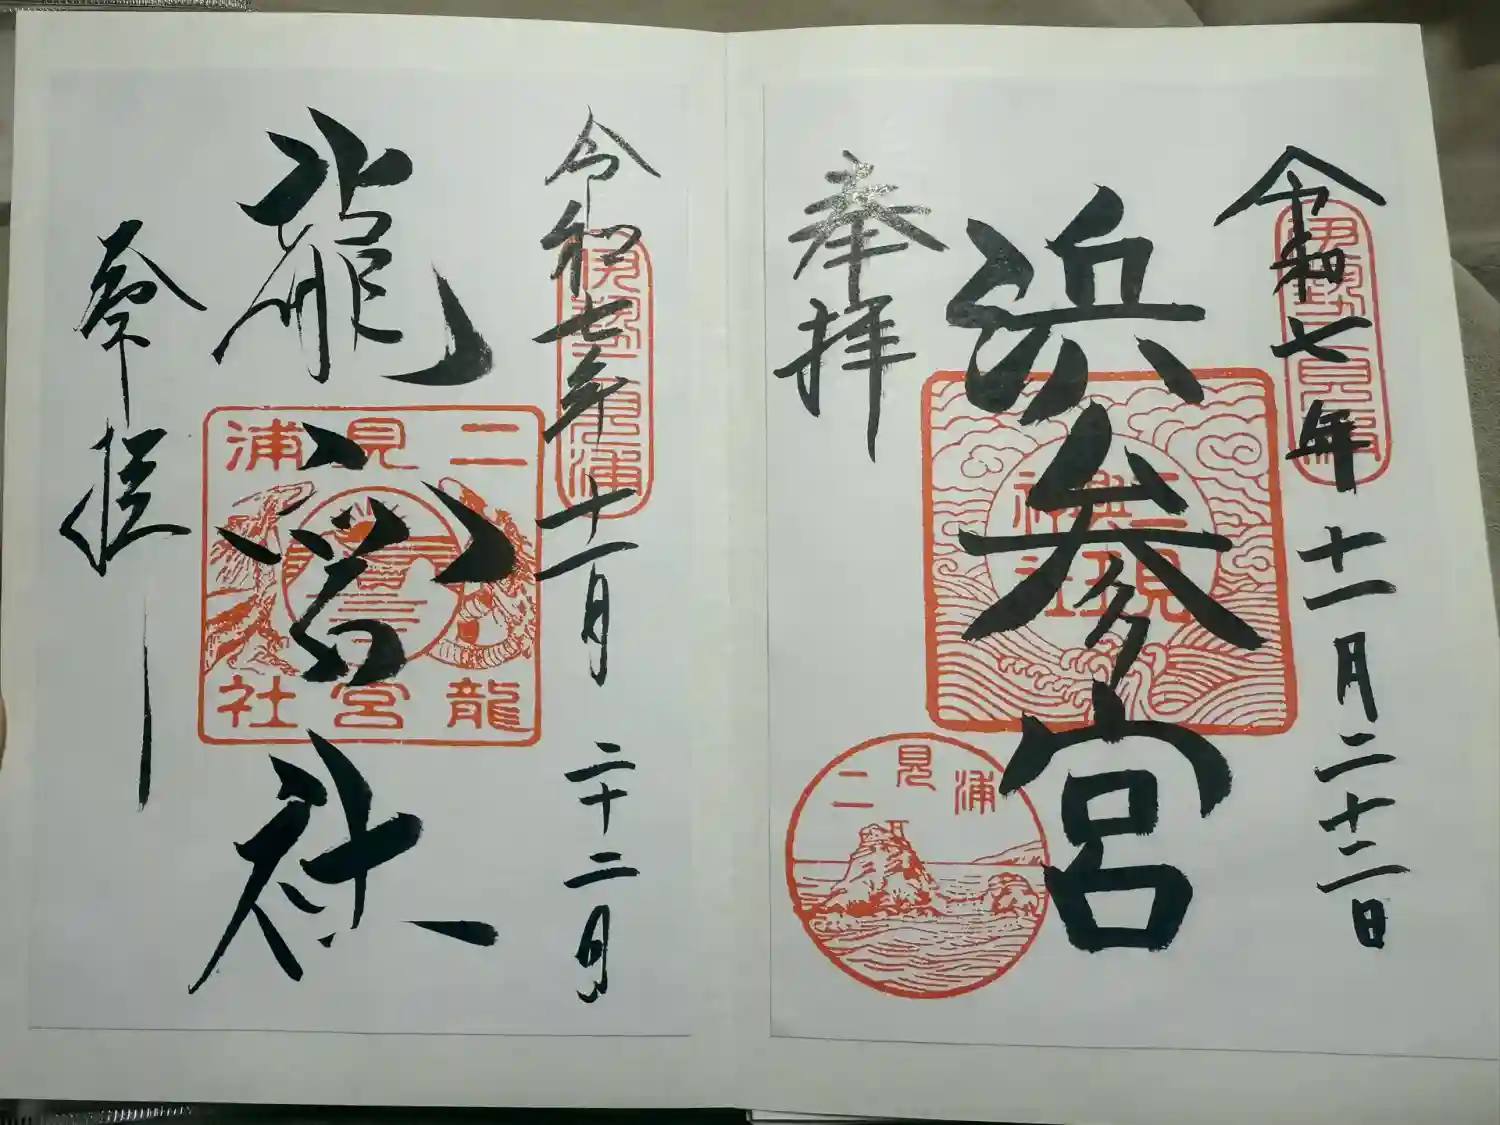 令和七年十一月二十二日
伊勢二見浦
浜参宮
二見興玉神社
奉拝
二見浦
令和七年十一月二十二日
伊勢二見浦
龍宮社
二見浦
龍宮社
奉拝